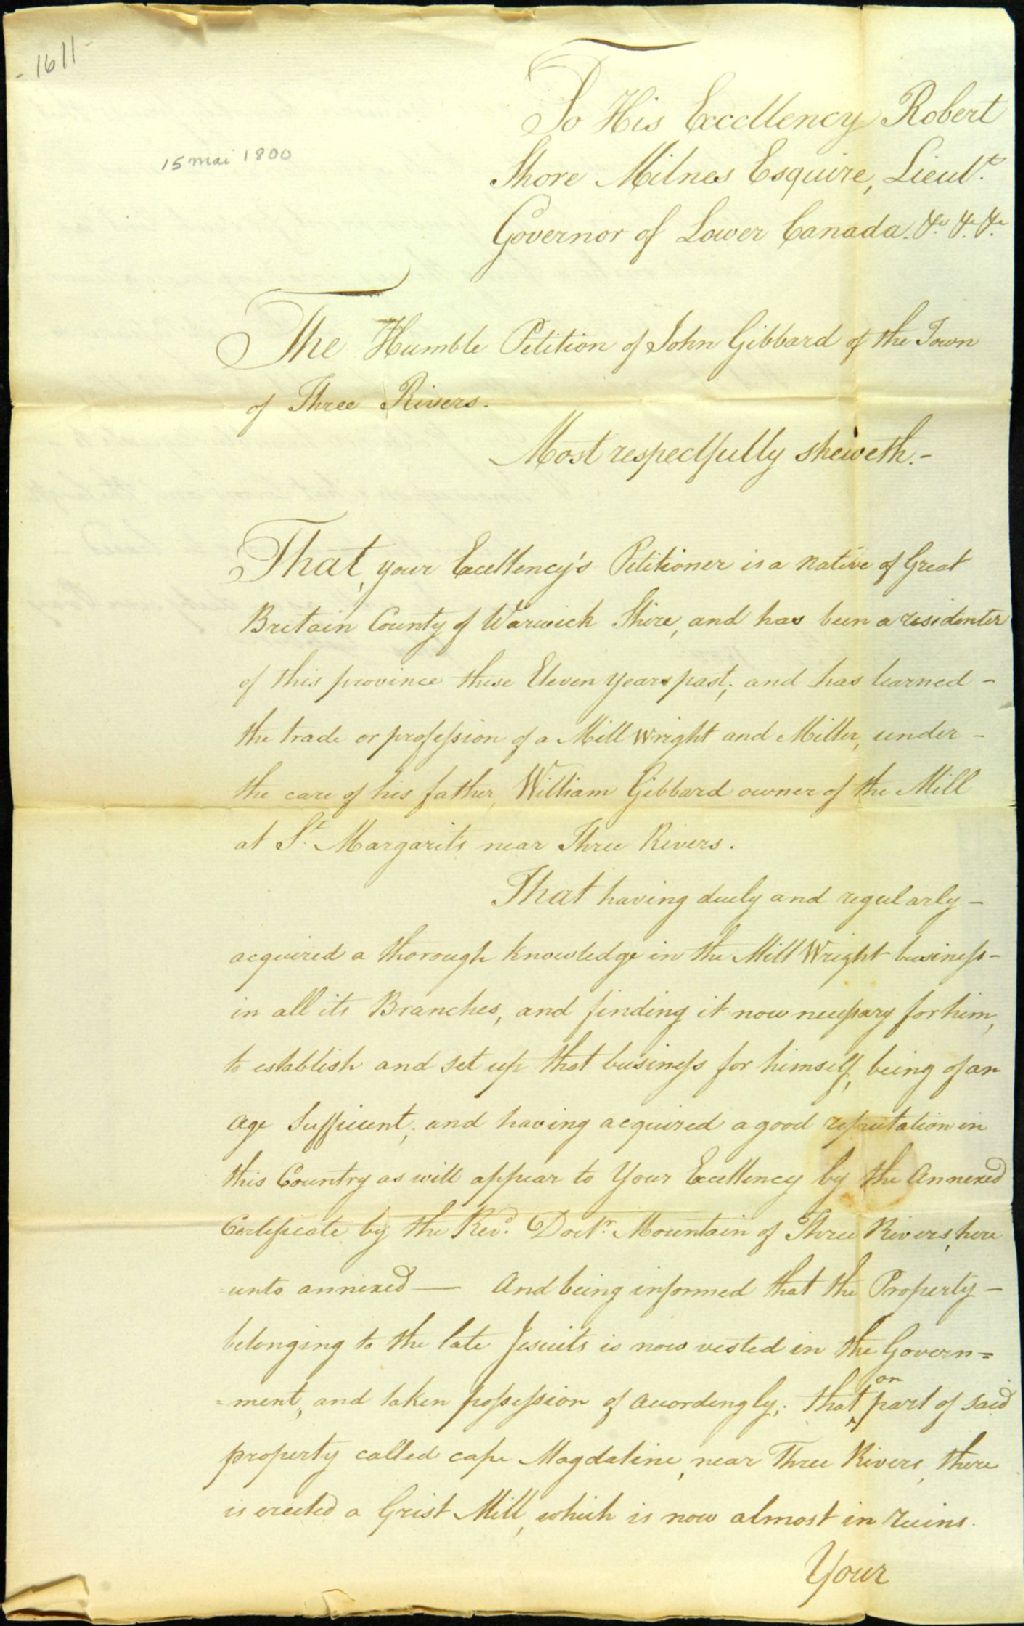 - 1611 -
15 mai 1800
To His Excellency Robert
Shore Milnes Esquire, Lieut.t
Governor of Lower Canada. &c. &c. &c.
The Humble Petition of John Gibbard of the Town
of Three Rivers.
Most respectfully sheweth.-
That, your Excellency's Petitioner is a native of Great
Britain County of Warwick Shire, and has been a residenter
of this province these Eleven years past; and has learned -
the trade or profession of a Mill wright and Miller, under -
the care of his father, William Gibbard owner of the Mill
at St. Margarits near Three Rivers.
That having duely and regularly -
acquired a thorough knowledge in the Mill Wright business -
in all its Branches, and finding it now necessary for him,
to establish and set up that business for himself, being of an
age sufficient; and having acquired a good reputation in
this Country as will appear to Your Excellency by the Annexed
Certificate by the Revd. Doctr. Mountain of Three Rivers, here
unto annexed — And being informed that the Property -
belonging to the late Jesuits is now vested in the Govern=
=ment, and taken possession of accordingly; that on part of said
property called cape Magdaline, near Three Rivers, there
is erected a Grist Mill, which is now almost in ruins.
Your